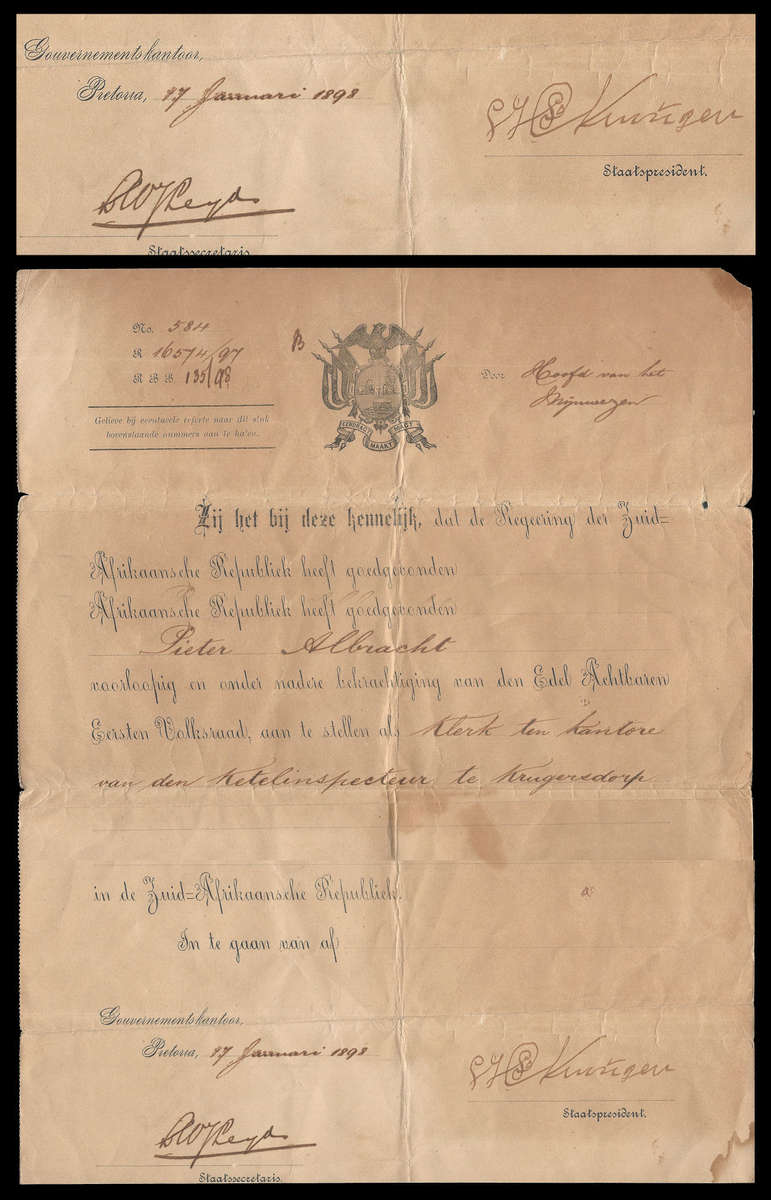 Gouvernementskantoor,
Pretoria, 17 Januari 1898
SJP Kruger
Staatspresident.
Dr W J Leyds
Staatssecretaris
No. 584
R 16574/97
R B B 135/98
B
Gelieve bij eventueele referte naar dit stuk
bovenstaande nummers aan te halen.
EENDRAGT MAAKT MAGT
Door Hoofd van het
Mijnwezen
Zij het bij deze kennelijk, dat de Regeering der Zuid=
Afrikaansche Republiek heeft goedgevonden
Afrikaansche Republiek heeft goedgevonden
Pieter Albracht
voorloopig en onder nadere bekrachtiging van den Edel Achtbaren
Eersten Volksraad, aan te stellen als Klerk ten kantore
van den Ketelinspecteur te Krugersdorp
in de Zuid=Afrikaansche Republiek.
In te gaan van af
Gouvernementskantoor,
Pretoria, 17 Januari 1898
SJP Kruger
Staatspresident.
Dr W J Leyds
Staatssecretaris.